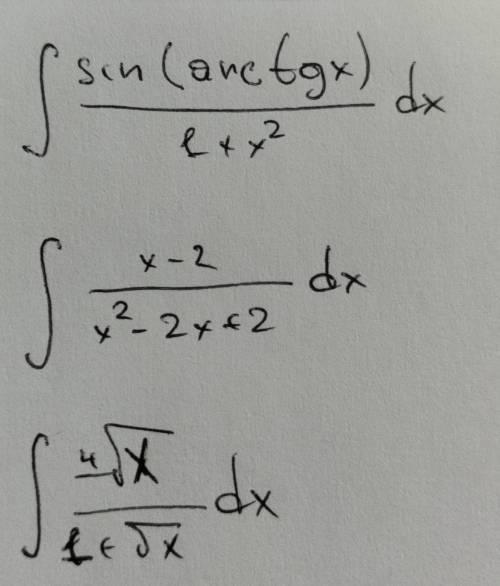 ∫ sin(arctgx) / (1 + x²) dx
∫ (x - 2) / (x² - 2x + 2) dx
∫ ⁴√x / (1 + √x) dx